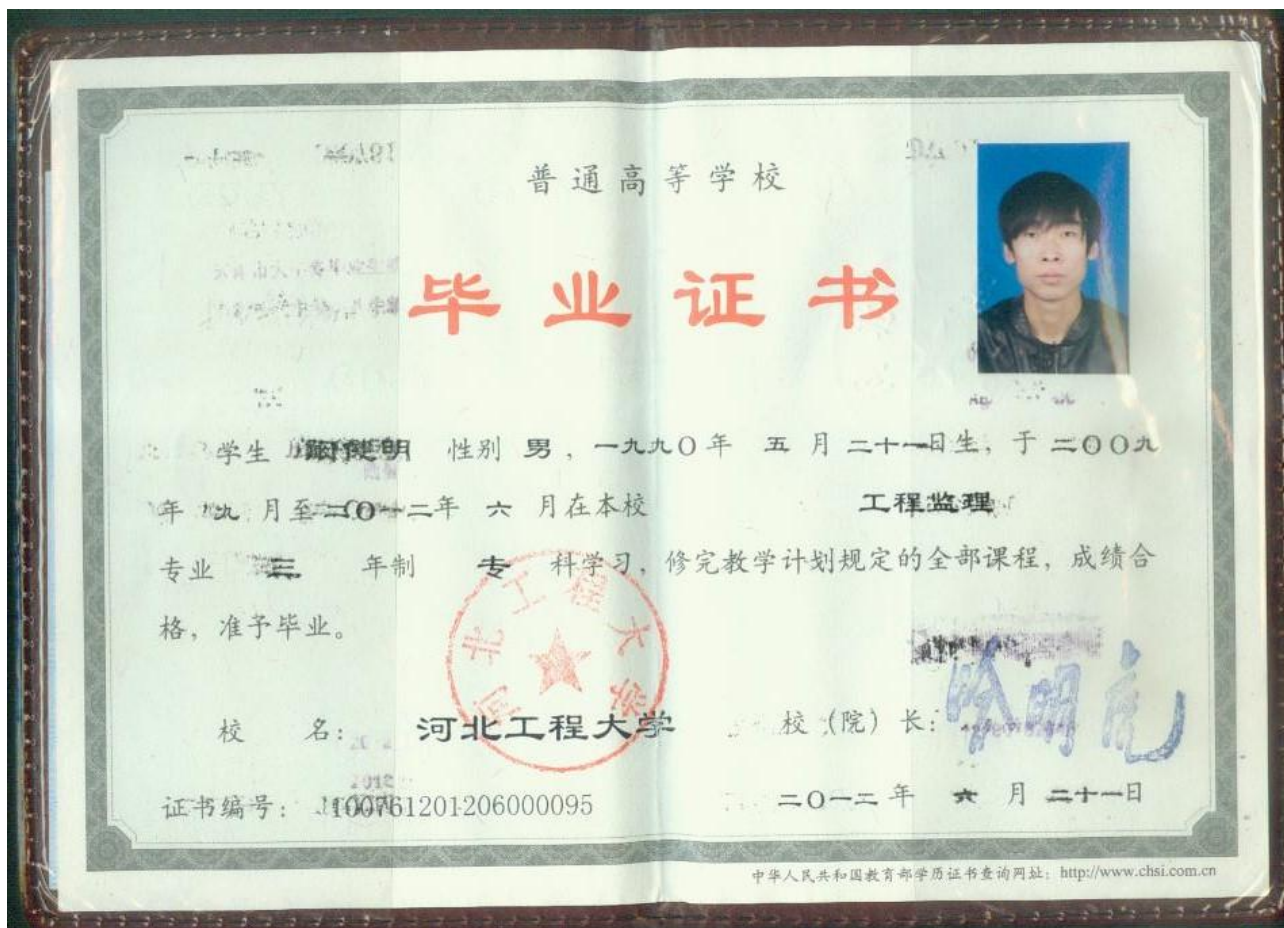 普通高等学校
毕业证书
学生 俊明 性别 男，一九九〇年 五 月 二十一日生，于 二〇〇九
年 九 月至 二〇一二年 六 月在本校 工程监理
专业 三 年制 专 科学习，修完教学计划规定的全部课程，成绩合
格，准予毕业。
河北工程大学
校 名： 河北工程大学 校（院）长： 哈明虎
证书编号： 100761201206000095 二〇一二 年 六 月 二十一日
中华人民共和国教育部学历证书查询网址：http://www.chsi.com.cn